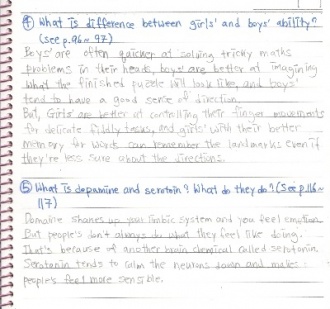 ④ What is difference between girls' and boys' ability?
(see p.96~97)
Boys' are often quicker at solving tricky maths
problems in their heads, boys' are better at imagining
what the finished puzzle will look like, and boys'
tend to have a good sense of direction.
But, Girls' are better at controlling their finger movements
for delicate fiddly tasks, and girls' with their better
memory for words can remember the landmarks even if
they're less sure about the directions.
⑤ What is dopamine and serotoin? What do they do? (See p.116~
117)
Domaine shanes up your limbic system and you feel emotion
But people's don't always do what they feel like doing.
That's because of another brain chemical called serotonin
Serotonin tends to calm the neurons down and makes
people's feel more sensible.